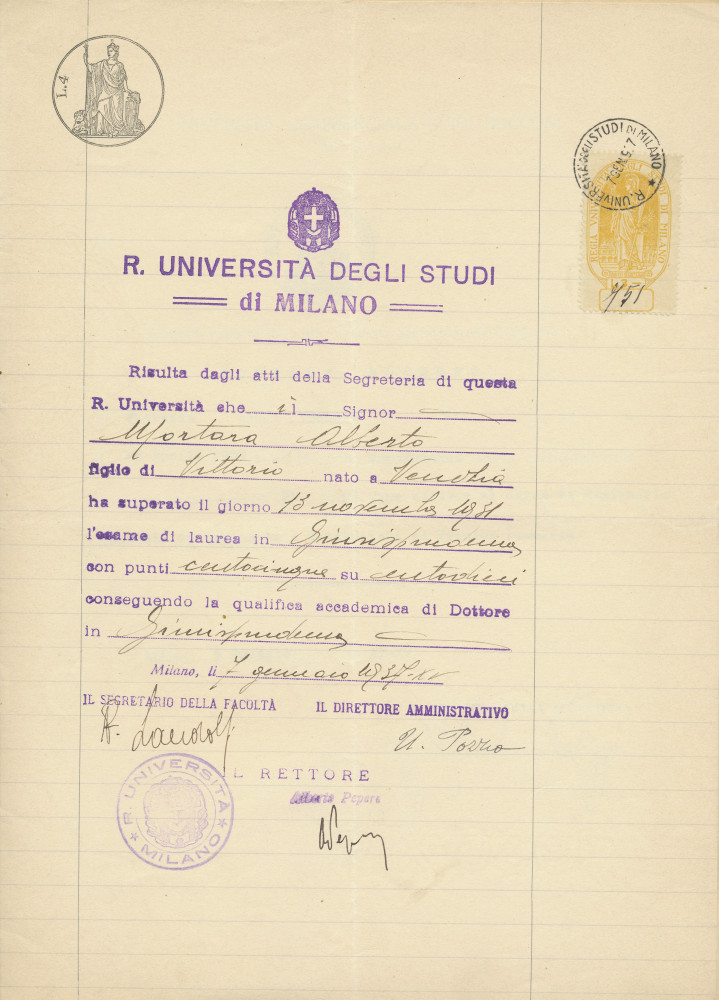 L. 4
R. UNIVERSITÀ DEGLI STUDI DI MILANO
7 GEN. 937
REGIA UNIV. DEGLI STUDI DI MILANO
751
R. UNIVERSITÀ DEGLI STUDI
di MILANO
Risulta dagli atti della Segreteria di questa
R. Università che il Signor
Mortara Alberto
figlio di Vittorio nato a Venezia
ha superato il giorno 13 novembre 1931
l'esame di laurea in Giurisprudenza
con punti centocinque su centodieci
conseguendo la qualifica accademica di Dottore
in Giurisprudenza
Milano, li 7 gennaio 1937-XV
IL SEGRETARIO DELLA FACOLTÀ IL DIRETTORE AMMINISTRATIVO
IL RETTORE
Alberto Pepere
R. UNIVERSITÀ MILANO